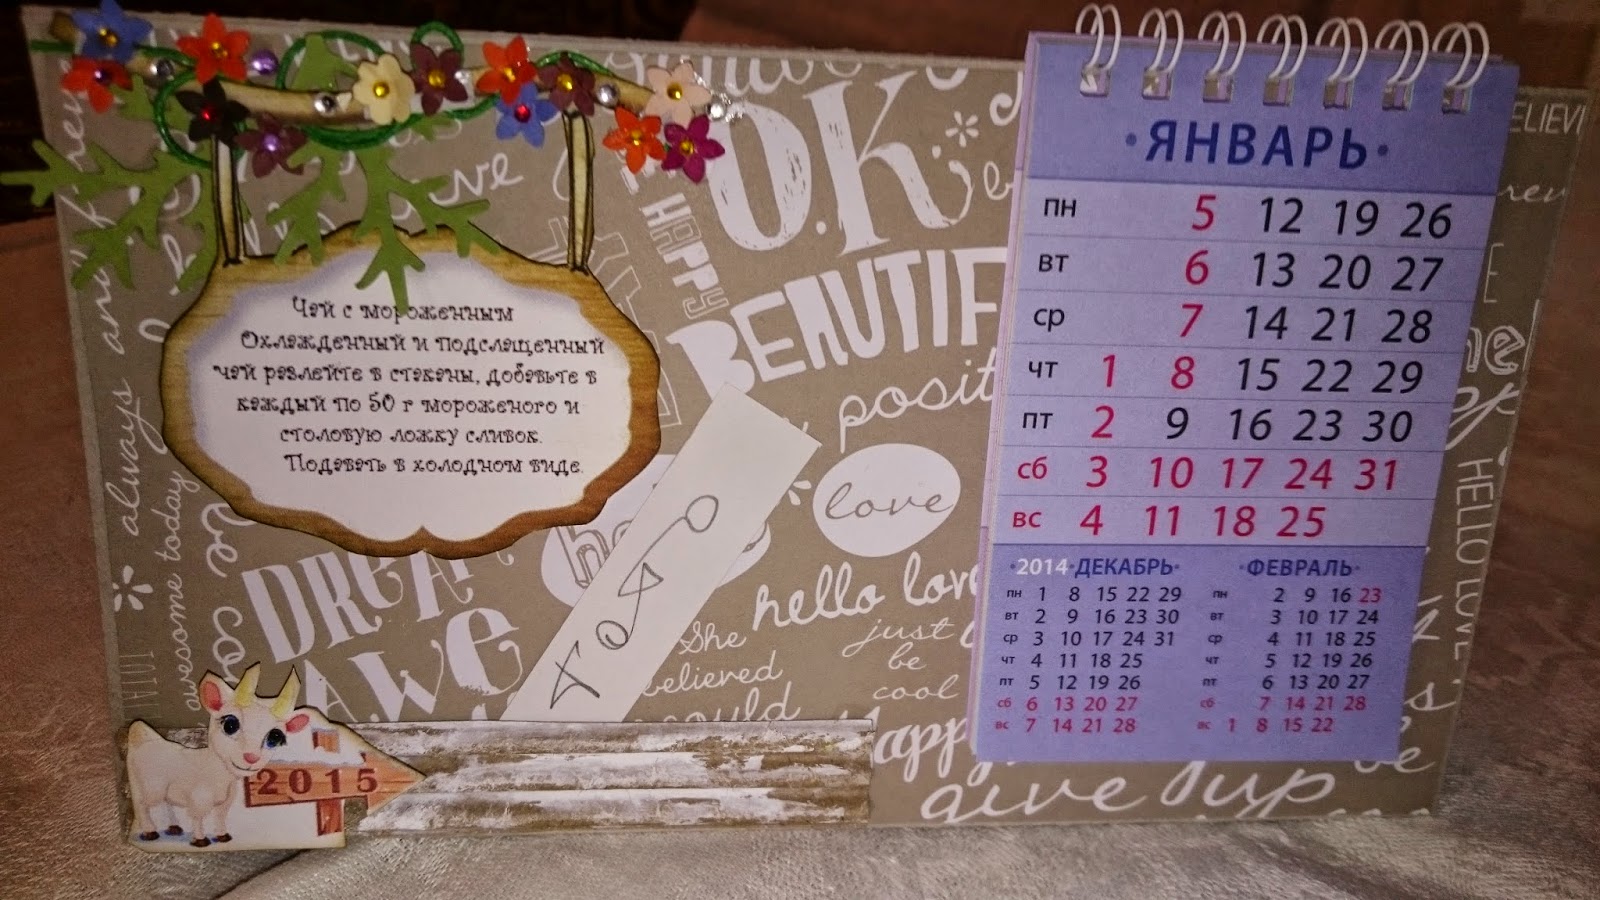 Чай с мороженным
Охлажденный и подслащенный
чай разлейте в стаканы, добавьте в
каждый по 50 г мороженого и
столовую ложку сливок.
Подавать в холодном виде.
always and
awesome today
be
O.K
HAPPY
BEAUTIF
posit
love
hello love
She
believed
could
just
be
cool
happy
give up
HELLO LOVE
2015
·ЯНВАРЬ·
пн 5 12 19 26
вт 6 13 20 27
ср 7 14 21 28
чт 1 8 15 22 29
пт 2 9 16 23 30
сб 3 10 17 24 31
вс 4 11 18 25
·2014·ДЕКАБРЬ·
пн 1 8 15 22 29
вт 2 9 16 23 30
ср 3 10 17 24 31
чт 4 11 18 25
пт 5 12 19 26
сб 6 13 20 27
вс 7 14 21 28
·ФЕВРАЛЬ·
пн 2 9 16 23
вт 3 10 17 24
ср 4 11 18 25
чт 5 12 19 26
пт 6 13 20 27
сб 7 14 21 28
вс 1 8 15 22